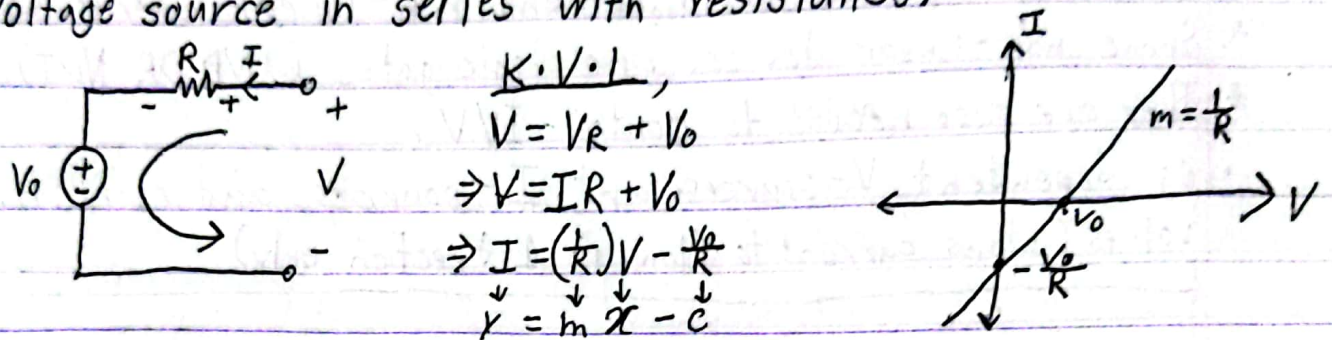 oltage source in series with resistance.
R I
- + +
V₀ + - V
-
K.V.L,
V = VR + V₀
⇒ V = IR + V₀
⇒ I = (1/R)V - V₀/R
↓ ↓ ↓ ↓
y = m x - c
I
m = 1/R
V
V₀
-V₀/R